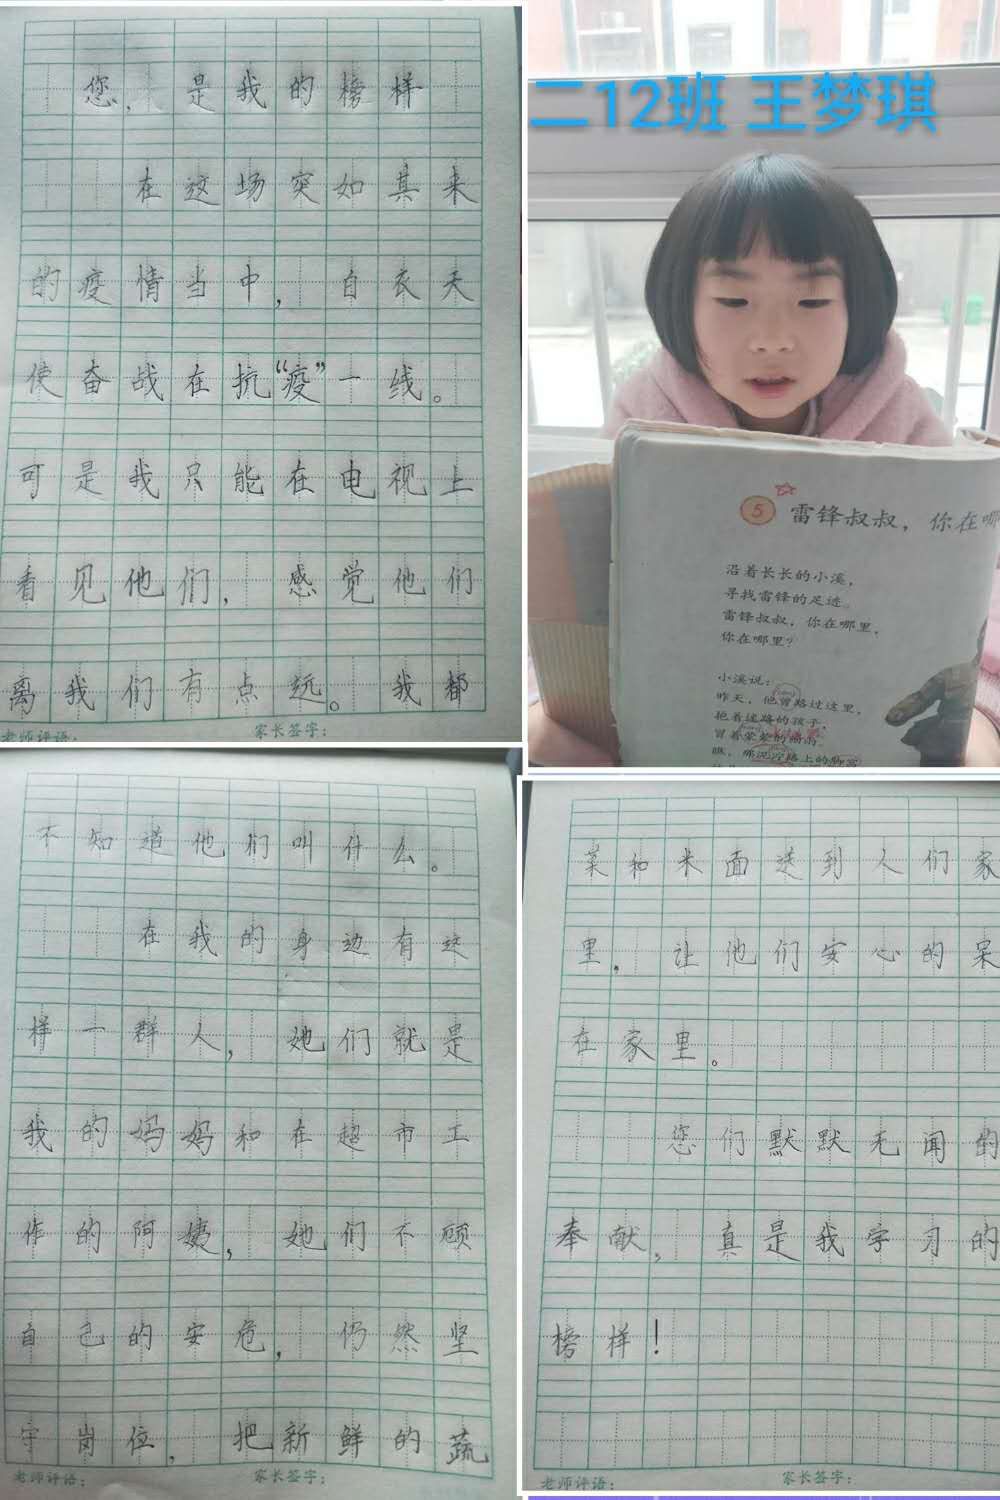 您,是我的榜样
在这场突如其来
的疫情当中,白衣天
使奋战在抗“疫”一线。
可是我只能在电视上
看见他们,感觉他们
离我们有点远。我都
老师评语:
家长签字:
二12班 王梦琪
5 雷锋叔叔，你在哪
沿着长长的小溪，
寻找雷锋的足迹。
雷锋叔叔，你在哪里，
你在哪里？
小溪说：
昨天，他曾路过这里，
抱着迷路的孩子，
冒着蒙蒙的细雨。
瞧，那泥泞路上的脚窝
不知道他们叫什么。
在我的身边有这
样一群人,她们就是
我的妈妈和在超市工
作的阿姨,她们不顾
自己的安危,仍然坚
守岗位,把新鲜的蔬
老师评语:
家长签字:
菜和米面送到人们家
里.让他们安心的呆
在家里。
您们默默无闻的
奉献,真是我学习的
榜样!
老师评语:
家长签字: